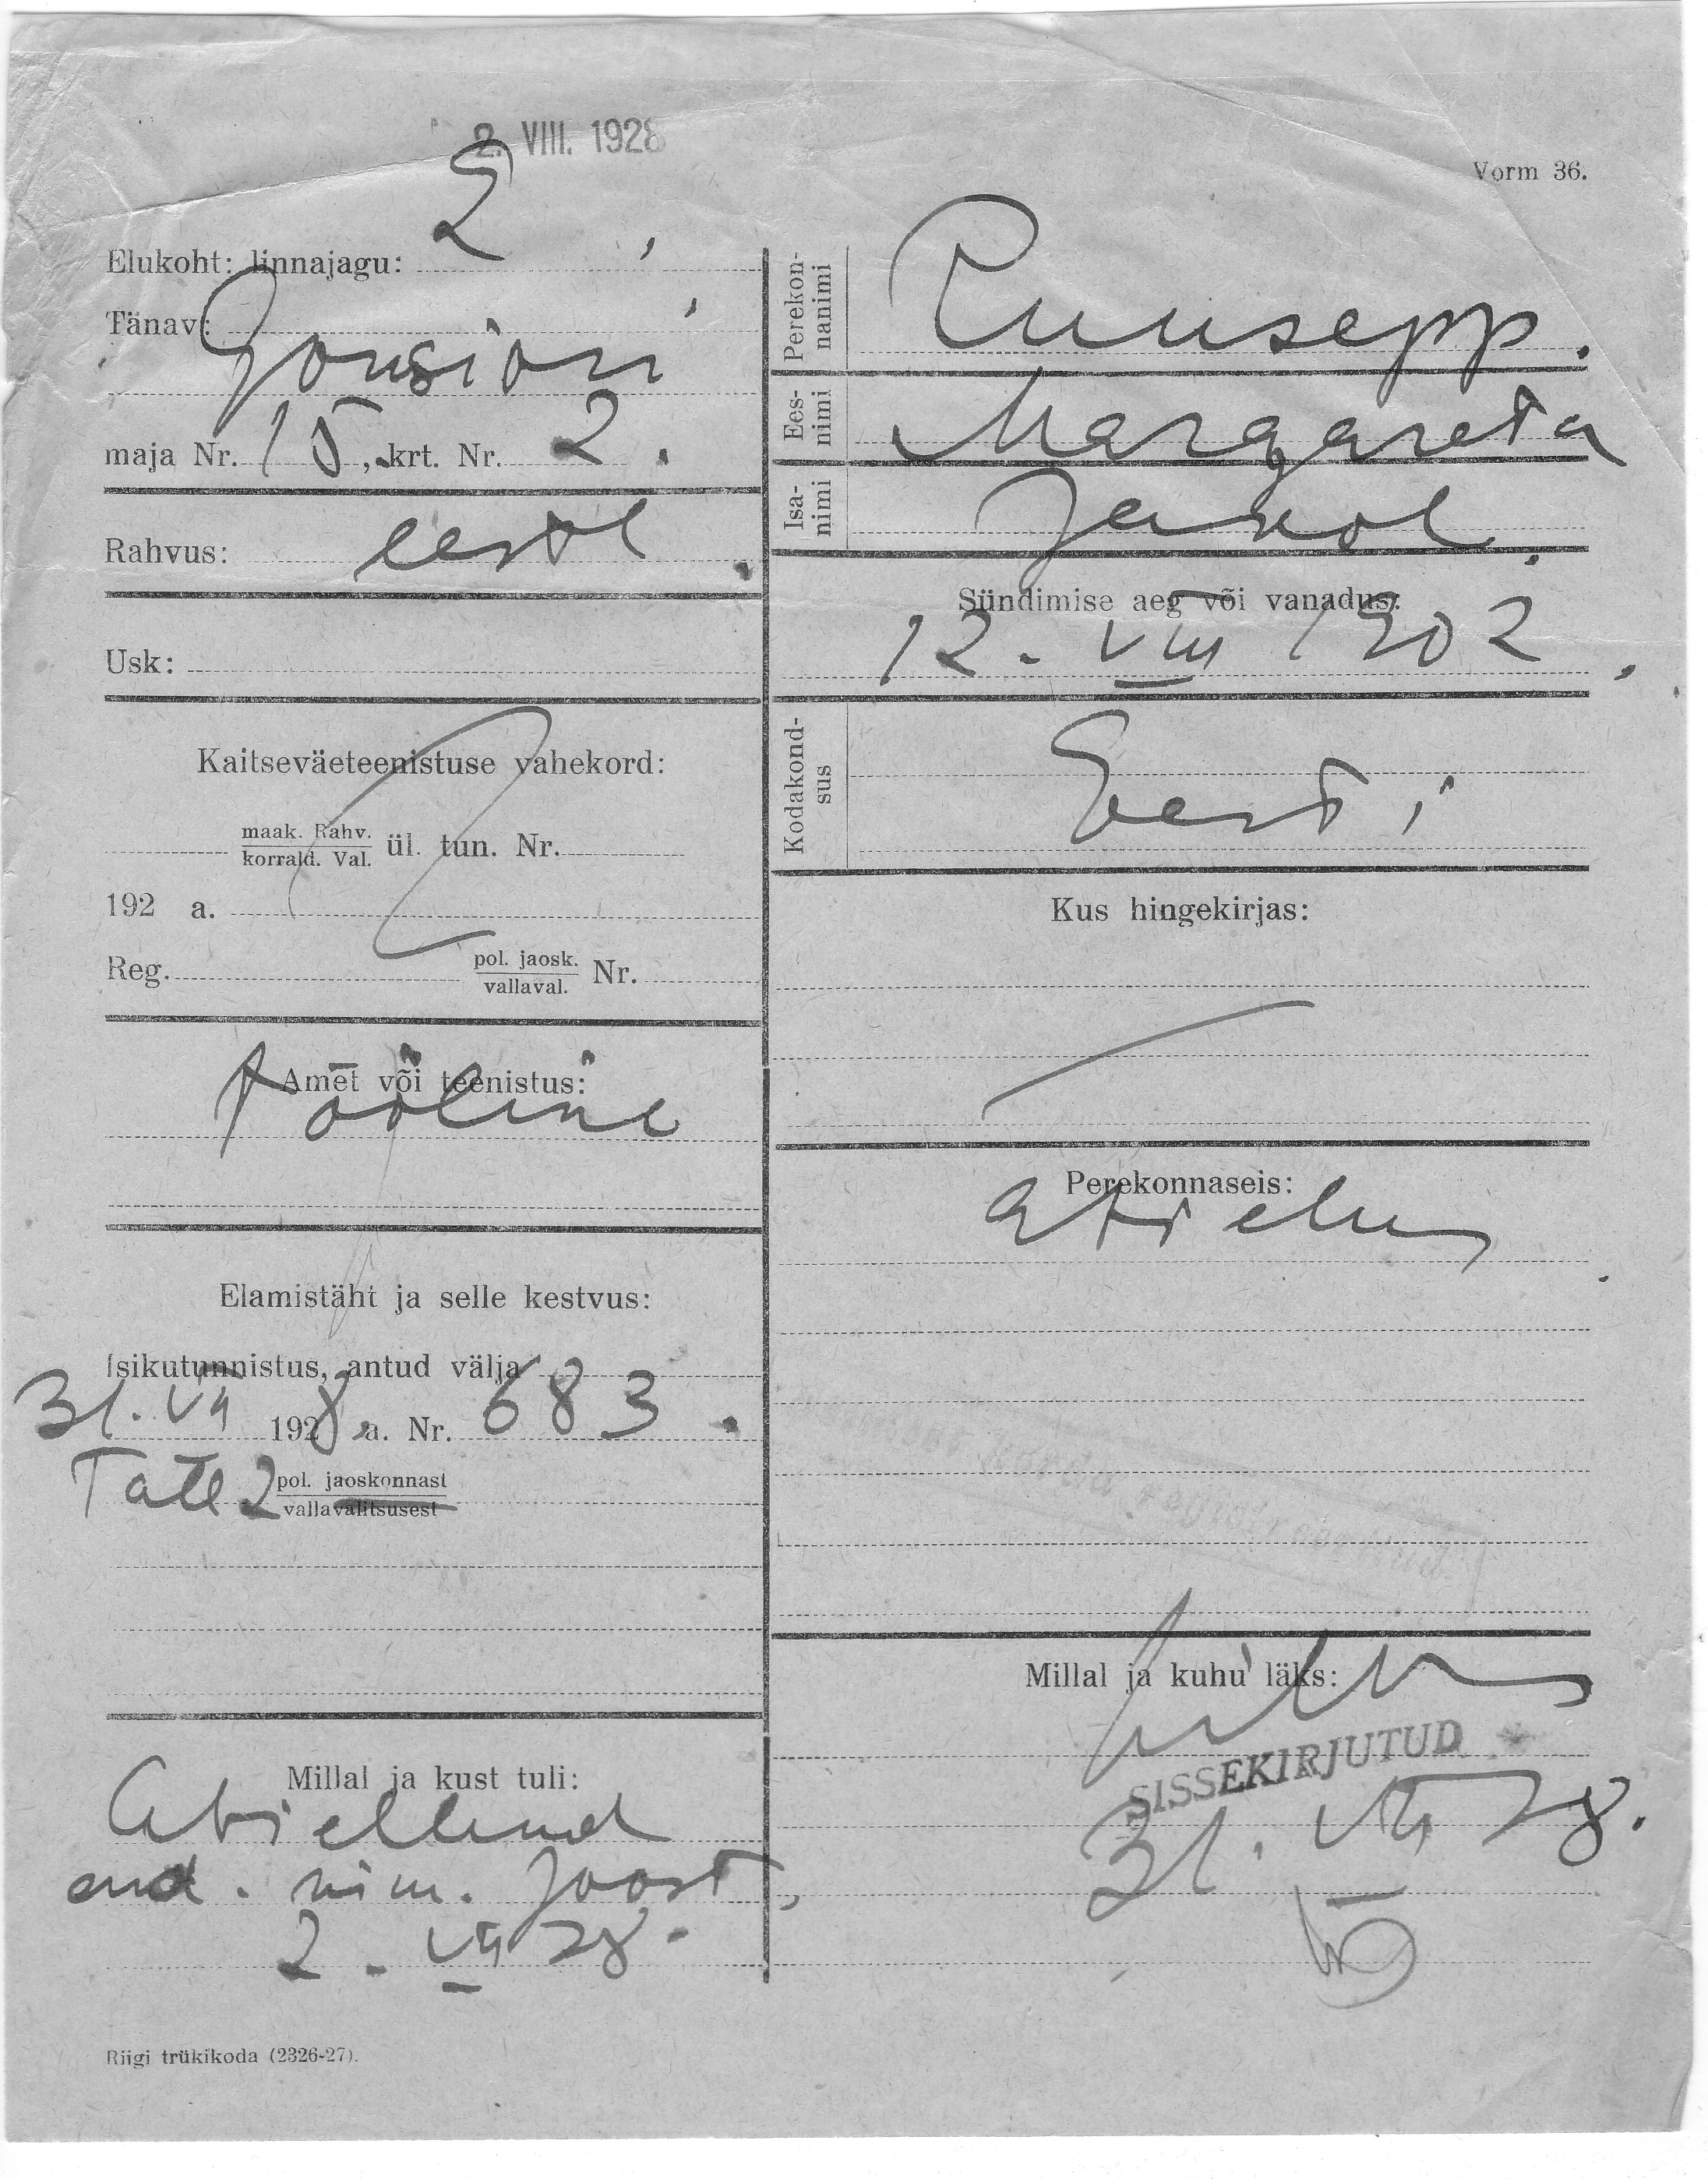 2. VIII. 1928
Vorm 36.
Elukoht: linnajagu: 2,
Tänav: Gonsiori
maja Nr. 15, krt. Nr. 2.
Rahvus: eestl.
Usk:
Kaitseväeteenistuse vahekord:
maak. Rahv.
korrald. Val.
ül. tun. Nr.
192 a.
Reg. pol. jaosk. Nr.
vallaval.
Amet või teenistus:
tööline
Elamistäht ja selle kestvus:
Isikutunnistus, antud välja
31. VII 1928 a. Nr. 683.
Tall 2 pol. jaoskonnast
vallavalitsusest
Millal ja kust tuli:
Abiellund
end. nim. Joost,
2. VII 28.
Perekon-
nanimi
Puusepp.
Ees-
nimi
Margareta
Isa-
nimi
Sündimise aeg või vanadus:
12. VIII 1902.
Kodakond-
sus
Eesti
Kus hingekirjas:
Perekonnaseis:
abielus
Millal ja kuhu läks:
SISSEKIRJUTUD
31. VII 28.
Riigi trükikoda (2326-27).